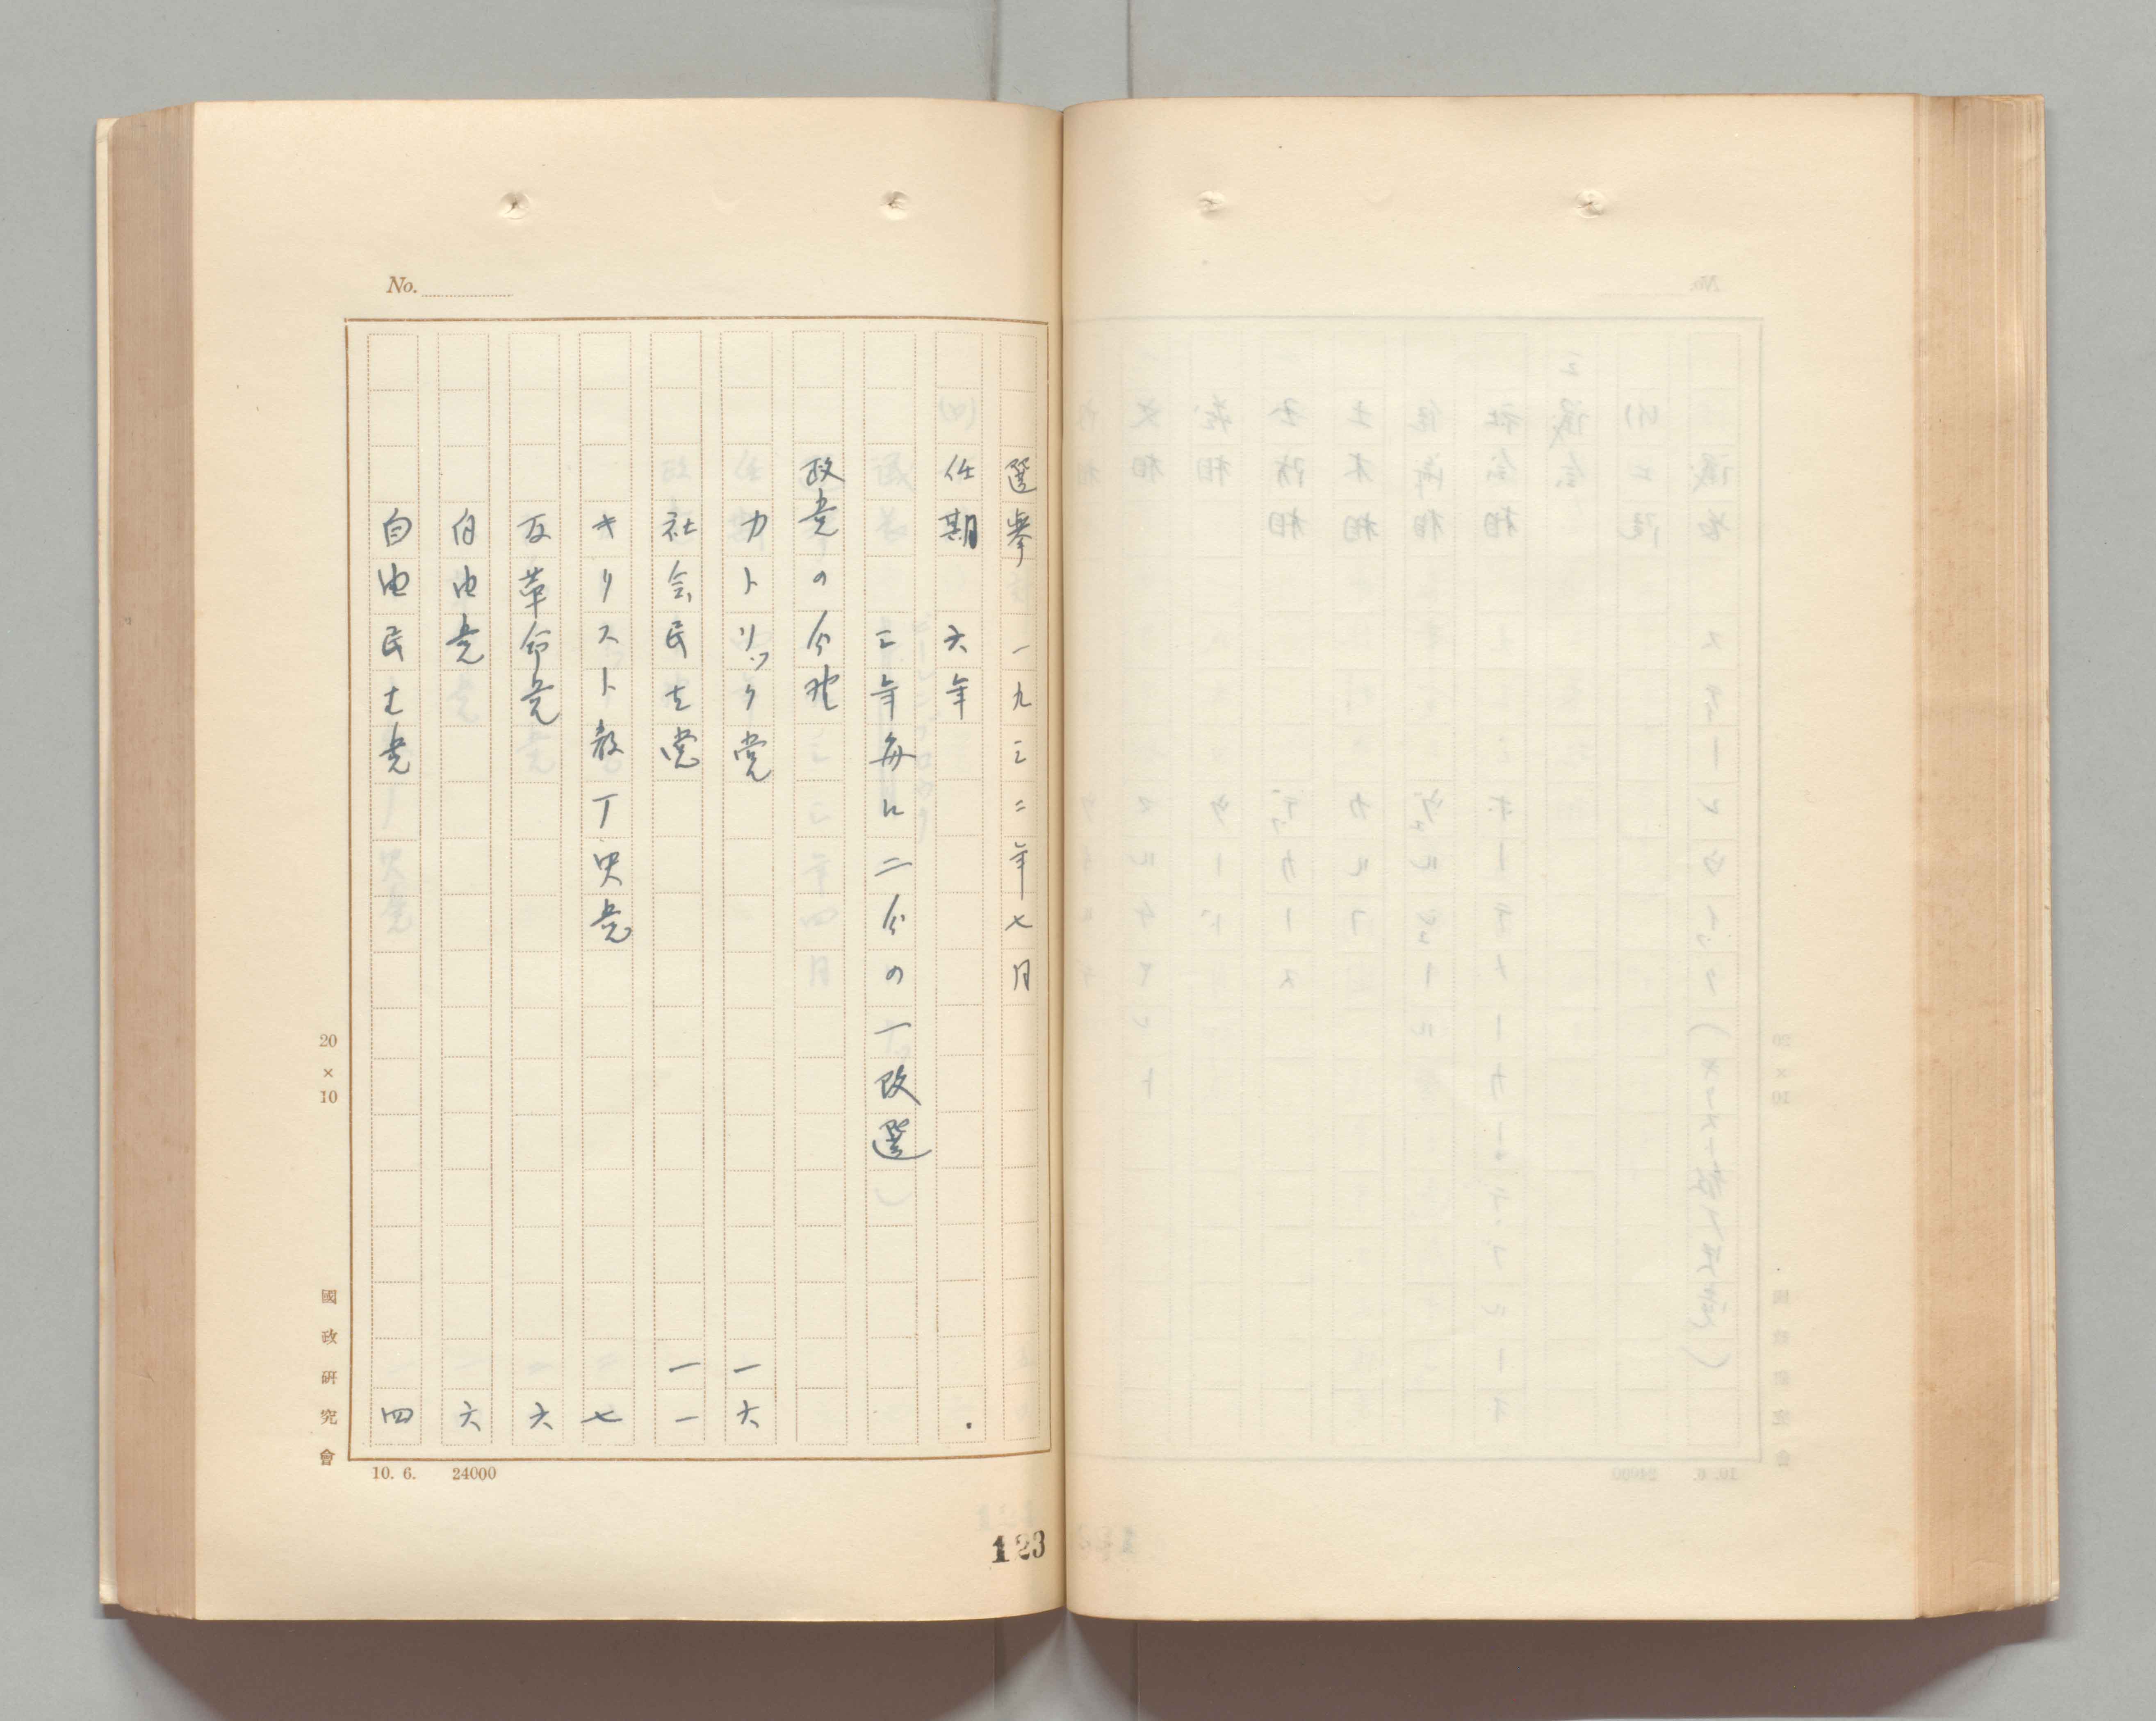 No.
選挙 一九三二年七月
任期 六年
三年毎に二分の一改選
政党の分野
カトリック党 一六
社会民主党 一一
キリスト教厂史党 七
反革命党 六
自由党 六
自由民主党 四
20×10
國政研究會
10. 6. 24000
123